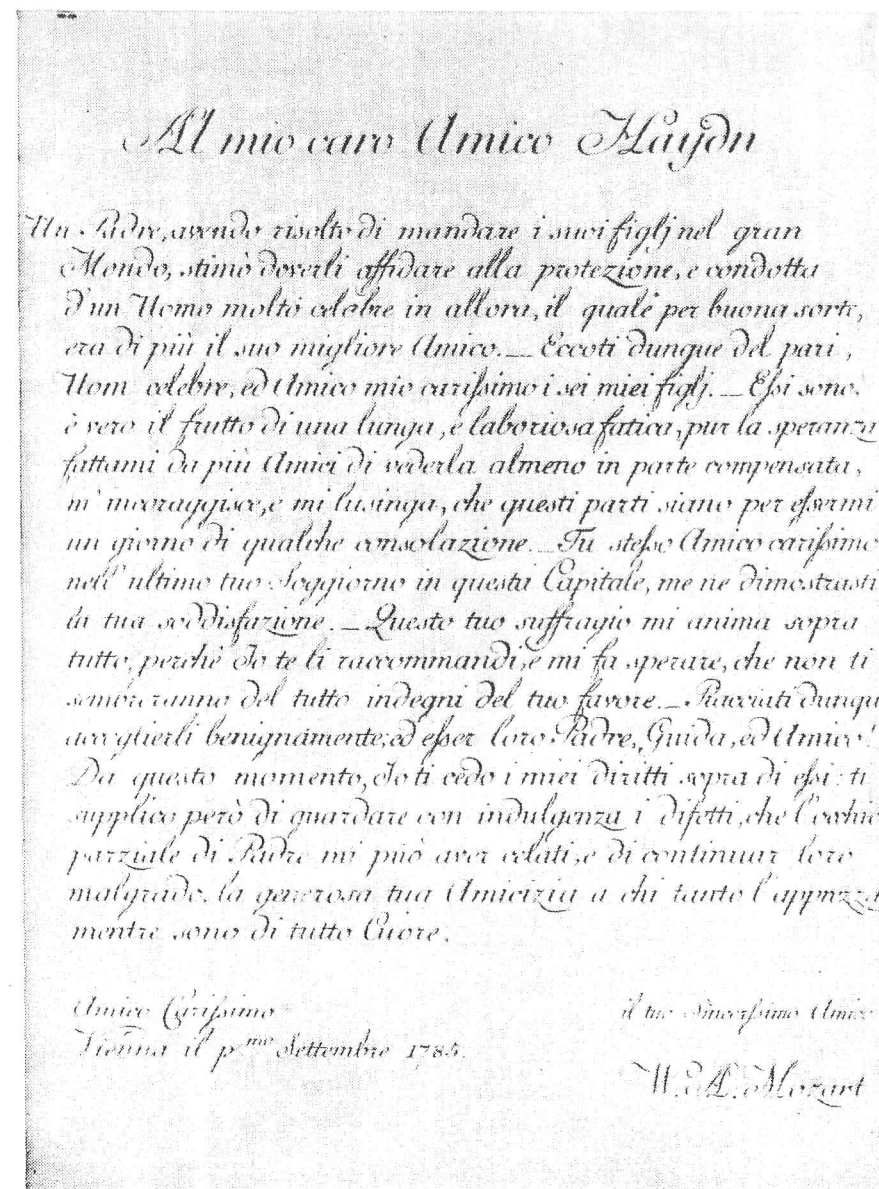 Al mio caro Amico Haydn
Un Padre, avendo risolto di mandare i suoi figlj nel gran
Mondo, stimò doverli affidare alla protezione, e condotta
d'un Uomo molto celebre in allora, il quale per buona sorte,
era di più il suo migliore Amico. _ Eccoti dunque del pari,
Uom celebre, ed Amico mio carissimo i sei miei figlj. _ Essi sono,
è vero il frutto di una lunga, e laboriosa fatica, pur la speranza
fattami da più Amici di vederla almeno in parte compensata,
m'incoraggisce, e mi lusinga, che questi parti siano per essermi
un giorno di qualche consolazione. _ Tu stesso Amico carissimo
nell'ultimo tuo Soggiorno in questa Capitale, me ne dimostrasti
la tua soddisfazione. _ Questo tuo suffragio mi anima sopra
tutto, perchè Io te li raccommandi, e mi fa sperare, che non ti
sembreranno del tutto indegni del tuo favore. _ Piacciati dunque
accoglierli benignamente; ed esser loro Padre, Guida, ed Amico!
Da questo momento, Io ti cedo i miei diritti sopra di essi: ti
supplico però di guardare con indulgenza i difetti, che l'occhio
parziale di Padre mi può aver celati, e di continuar loro
malgrado, la generosa tua Amicizia a chi tanto l'apprezza
mentre sono di tutto Cuore.
Amico Carissimo
il tuo Sincerissimo Amico
Vienna il p.mo Settembre 1785.
W. A. Mozart